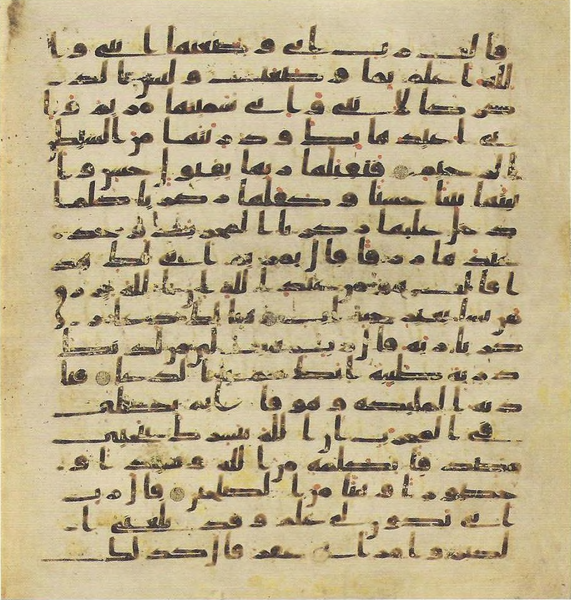 قالت رب اني وضعتها انثى وا
لله اعلم بما وضعت وليس الذ
كر كالانثى واني سميتها مريم وا
ني اعيذها بك وذريتها من الشيطن
الرجيم فتقبلها ربها بقبول حسن وا
نبتها نباتا حسنا وكفلها زكريا كلما
دخل عليها زكريا المحراب وجد
عندها رزقا قال يمريم انى لك هذ
ا قالت هو من عند الله ان الله يرزق
من يشا بغير حساب هنالك دعا ز
كريا ربه قال رب هب لي من لدنك
ذرية طيبة انك سميع الدعا فنا
دته الملئكة وهو قائم يصلي
في المحراب ان الله يبشرك بيحيى
مصدقا بكلمة من الله وسيدا و
حصورا ونبيا من الصلحين قال رب
انى يكون لي غلم وقد بلغني ا
لكبر وامراتي عاقر قال كذلك ا